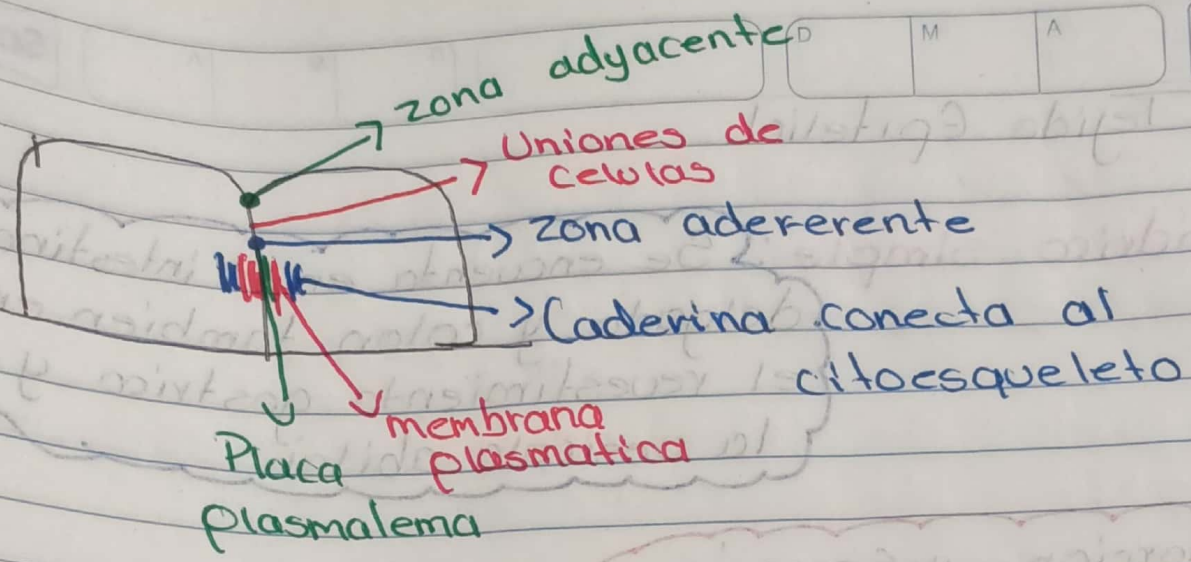 zona adyacente
D M A
Uniones de
celulas
zona adererente
Caderina conecta al
citoesqueleto
membrana
plasmatica
Placa
plasmalema